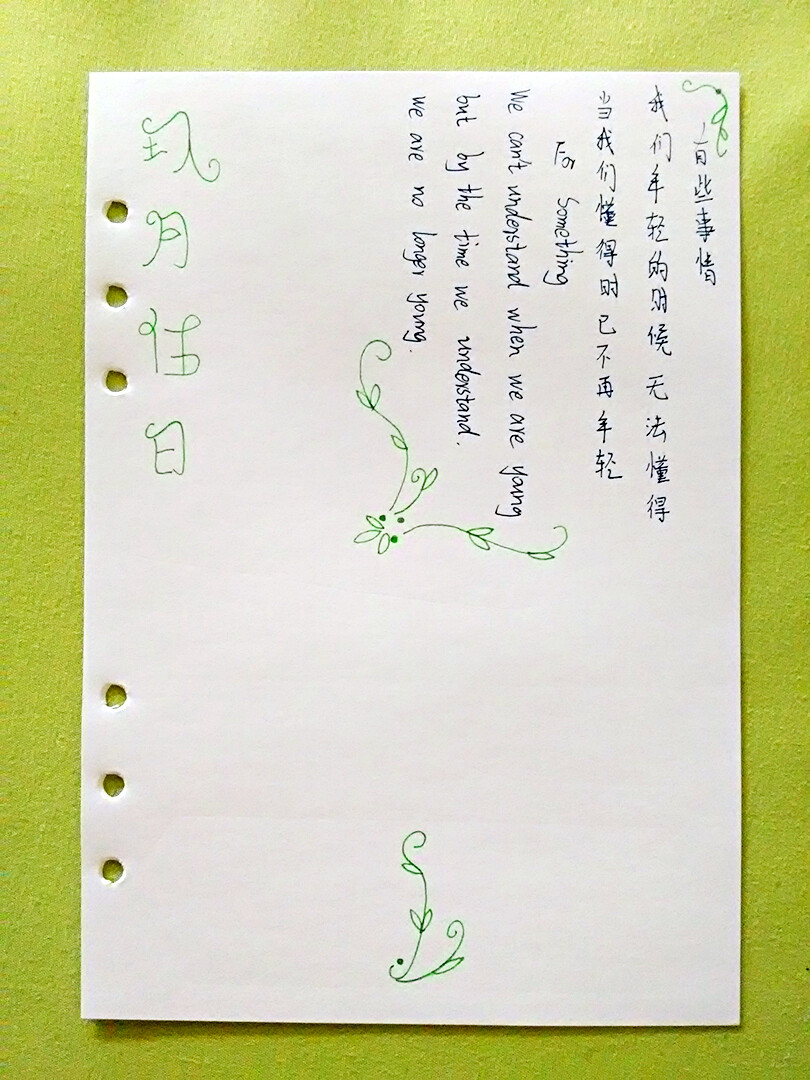 有些事情
我们年轻的时候 无法懂得
当我们懂得时已不再年轻
For Something
We can't understand when we are young
but by the time we understand.
we are no longer young.
玖月伍日